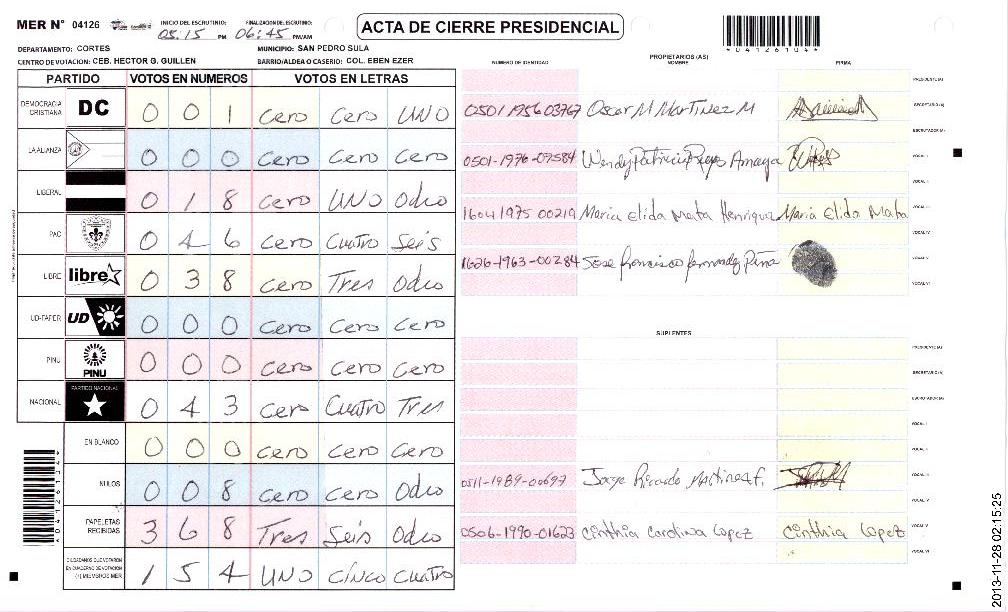 MER N° 04126 INICIO DEL ESCRUTINIO: 05:15 PM FINALIZACION DEL ESCRUTINIO: 06:45 PM/AM
ACTA DE CIERRE PRESIDENCIAL
*04126104*
DEPARTAMENTO: CORTES MUNICIPIO: SAN PEDRO SULA
CENTRO DE VOTACION: CEB. HECTOR G. GUILLEN BARRIO/ALDEA O CASERIO: COL. EBEN EZER
PARTIDO VOTOS EN NUMEROS VOTOS EN LETRAS
DEMOCRACIA CRISTIANA DC 0 0 1 Cero Cero UNO
LA ALIANZA 0 0 0 Cero Cero Cero
LIBERAL 0 1 8 Cero UNO Ocho
PAC 0 4 6 Cero Cuatro Seis
LIBRE libre 0 3 8 Cero Tres Ocho
UD-FAPER UD 0 0 0 Cero Cero Cero
PINU PINU 0 0 0 Cero Cero Cero
NACIONAL PARTIDO NACIONAL 0 4 3 Cero Cuatro Tres
EN BLANCO 0 0 0 Cero Cero Cero
NULOS 0 0 8 Cero Cero Ocho
PAPELETAS RECIBIDAS 3 6 8 Tres Seis Ocho
CIUDADANOS QUE VOTARON EN CUADERNO DE VOTACION (+) MIEMBROS MER 1 5 4 UNO CINCO CUATRO
*04126114*
PROPIETARIOS (AS)
NUMERO DE IDENTIDAD NOMBRE FIRMA
PRESIDENTE (A)
0501 1956 03767 Oscar M Martinez M SECRETARIO (A)
ESCRUTADOR (A)
0501-1976-07584 Wendy Patricia Reyes Amaya VOCAL I
VOCAL II
1604 1975 00219 Maria elida Mata Henriquez Maria Elida Mata VOCAL III
VOCAL IV
1626-1963-00284 Jose francisco fernandez Pina VOCAL V
VOCAL VI
SUPLENTES
PRESIDENTE (A)
SECRETARIO (A)
ESCRUTADOR (A)
VOCAL I
VOCAL II
0511-1989-00697 Jorge Ricardo Martinez F. VOCAL III
VOCAL IV
0506-1990-01623 Cinthia Carolina Lopez Cinthia Lopez VOCAL V
VOCAL VI
2013-11-28 02:15:25